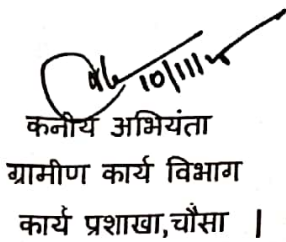 10/11/
कनीय अभियंता
ग्रामीण कार्य विभाग
कार्य प्रशाखा,चौसा |